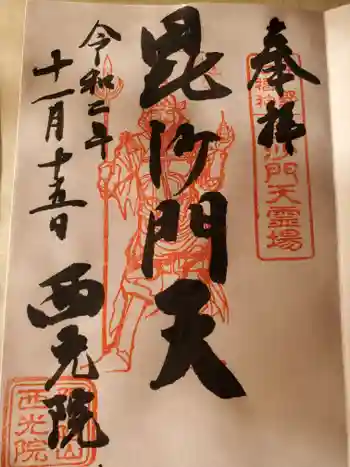 奉拝
沙門天霊場
毘沙門天
令和二年
十一月十五日
西光院
山
西光院